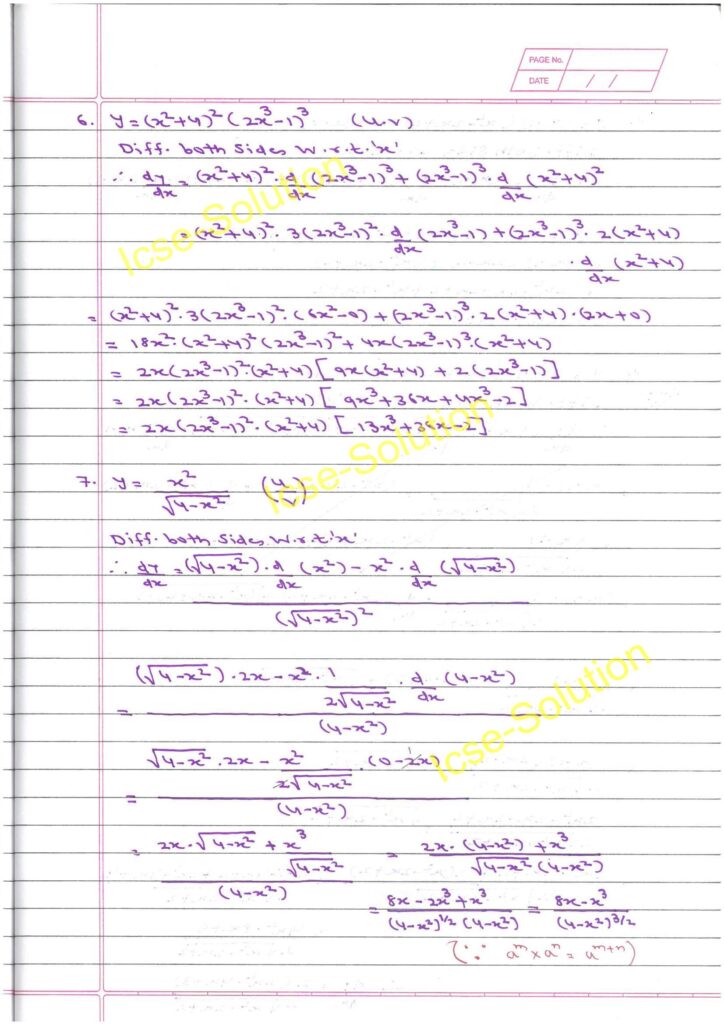 PAGE No.
DATE / /
6. y = (x²+4)² (2x³-1)³ (u.v)
Diff. both sides w.r.t. 'x'
∴ dy/dx = (x²+4)² · d/dx (2x³-1)³ + (2x³-1)³ · d/dx (x²+4)²
= (x²+4)² · 3(2x³-1)² · d/dx (2x³-1) + (2x³-1)³ · 2(x²+4)
· d/dx (x²+4)
= (x²+4)² · 3(2x³-1)² · (6x²-0) + (2x³-1)³ · 2(x²+4) · (2x+0)
= 18x² · (x²+4)² (2x³-1)² + 4x(2x³-1)³ · (x²+4)
= 2x(2x³-1)² · (x²+4) [9x(x²+4) + 2(2x³-1)]
= 2x(2x³-1)² · (x²+4) [9x³+36x+4x³-2]
= 2x(2x³-1)² · (x²+4) [13x³+36x-2]
7. y = x²/√(4-x²) (u/v)
Diff. both sides w.r.t. 'x'
∴ dy/dx = ((√(4-x²)) · d/dx (x²) - x² · d/dx (√(4-x²)))/(√(4-x²))²
= ((√(4-x²)) · 2x - x² · 1/(2√(4-x²)) · d/dx (4-x²))/(4-x²)
= (√(4-x²) · 2x - x²/(2√(4-x²)) · (0-2x))/(4-x²)
= (2x · √(4-x²) + x³/√(4-x²))/(4-x²) = (2x · (4-x²) + x³)/(√(4-x²) (4-x²))
= (8x-2x³+x³)/((4-x²)^1/2 (4-x²)) = (8x-x³)/(4-x²)^3/2
(∵ aᵐ × aⁿ = aᵐ⁺ⁿ)
Icse-Solution
Icse-Solution
Icse-Solution